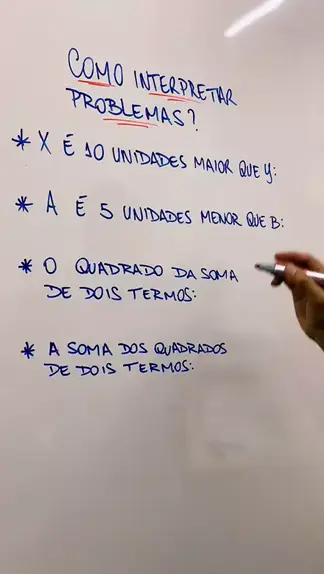 COMO INTERPRETAR
PROBLEMAS?
* X É 10 UNIDADES MAIOR QUE Y:
* A É 5 UNIDADES MENOR QUE B:
* O QUADRADO DA SOMA
DE DOIS TERMOS:
* A SOMA DOS QUADRADOS
DE DOIS TERMOS: